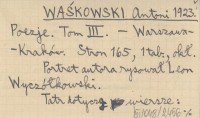 WAŚKOWSKI Antoni 1923.
Poezje. Tom III. - Warszawa-
-Kraków. Stron 165, 1 tab. okł.
Portret autora rysował Leon
Wyczółkowski.
Tatr dotyczą wiersze: